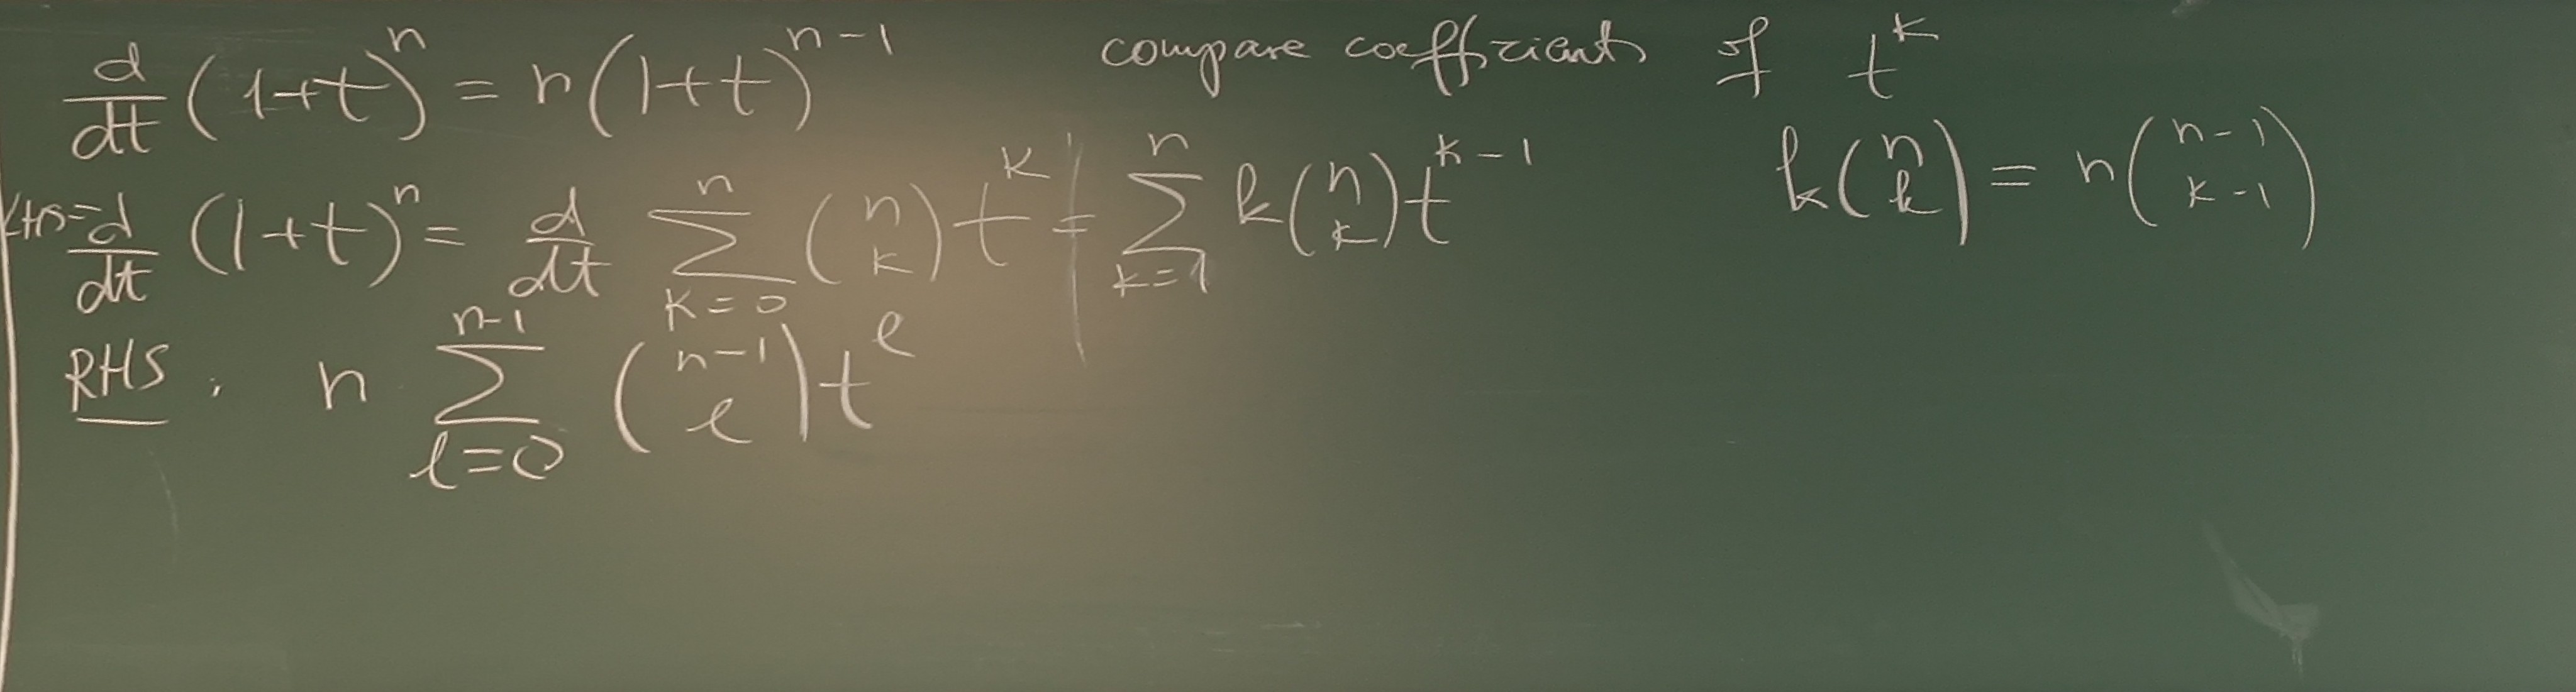 d/dt (1+t)^n = n(1+t)^{n-1}
LHS = d/dt (1+t)^n = d/dt ∑_{k=0}^{n} \binom{n}{k} t^k = ∑_{k=1}^{n} k \binom{n}{k} t^{k-1}
RHS: n ∑_{l=0}^{n-1} \binom{n-1}{l} t^l
compare coefficients of t^k
k \binom{n}{k} = n \binom{n-1}{k-1}